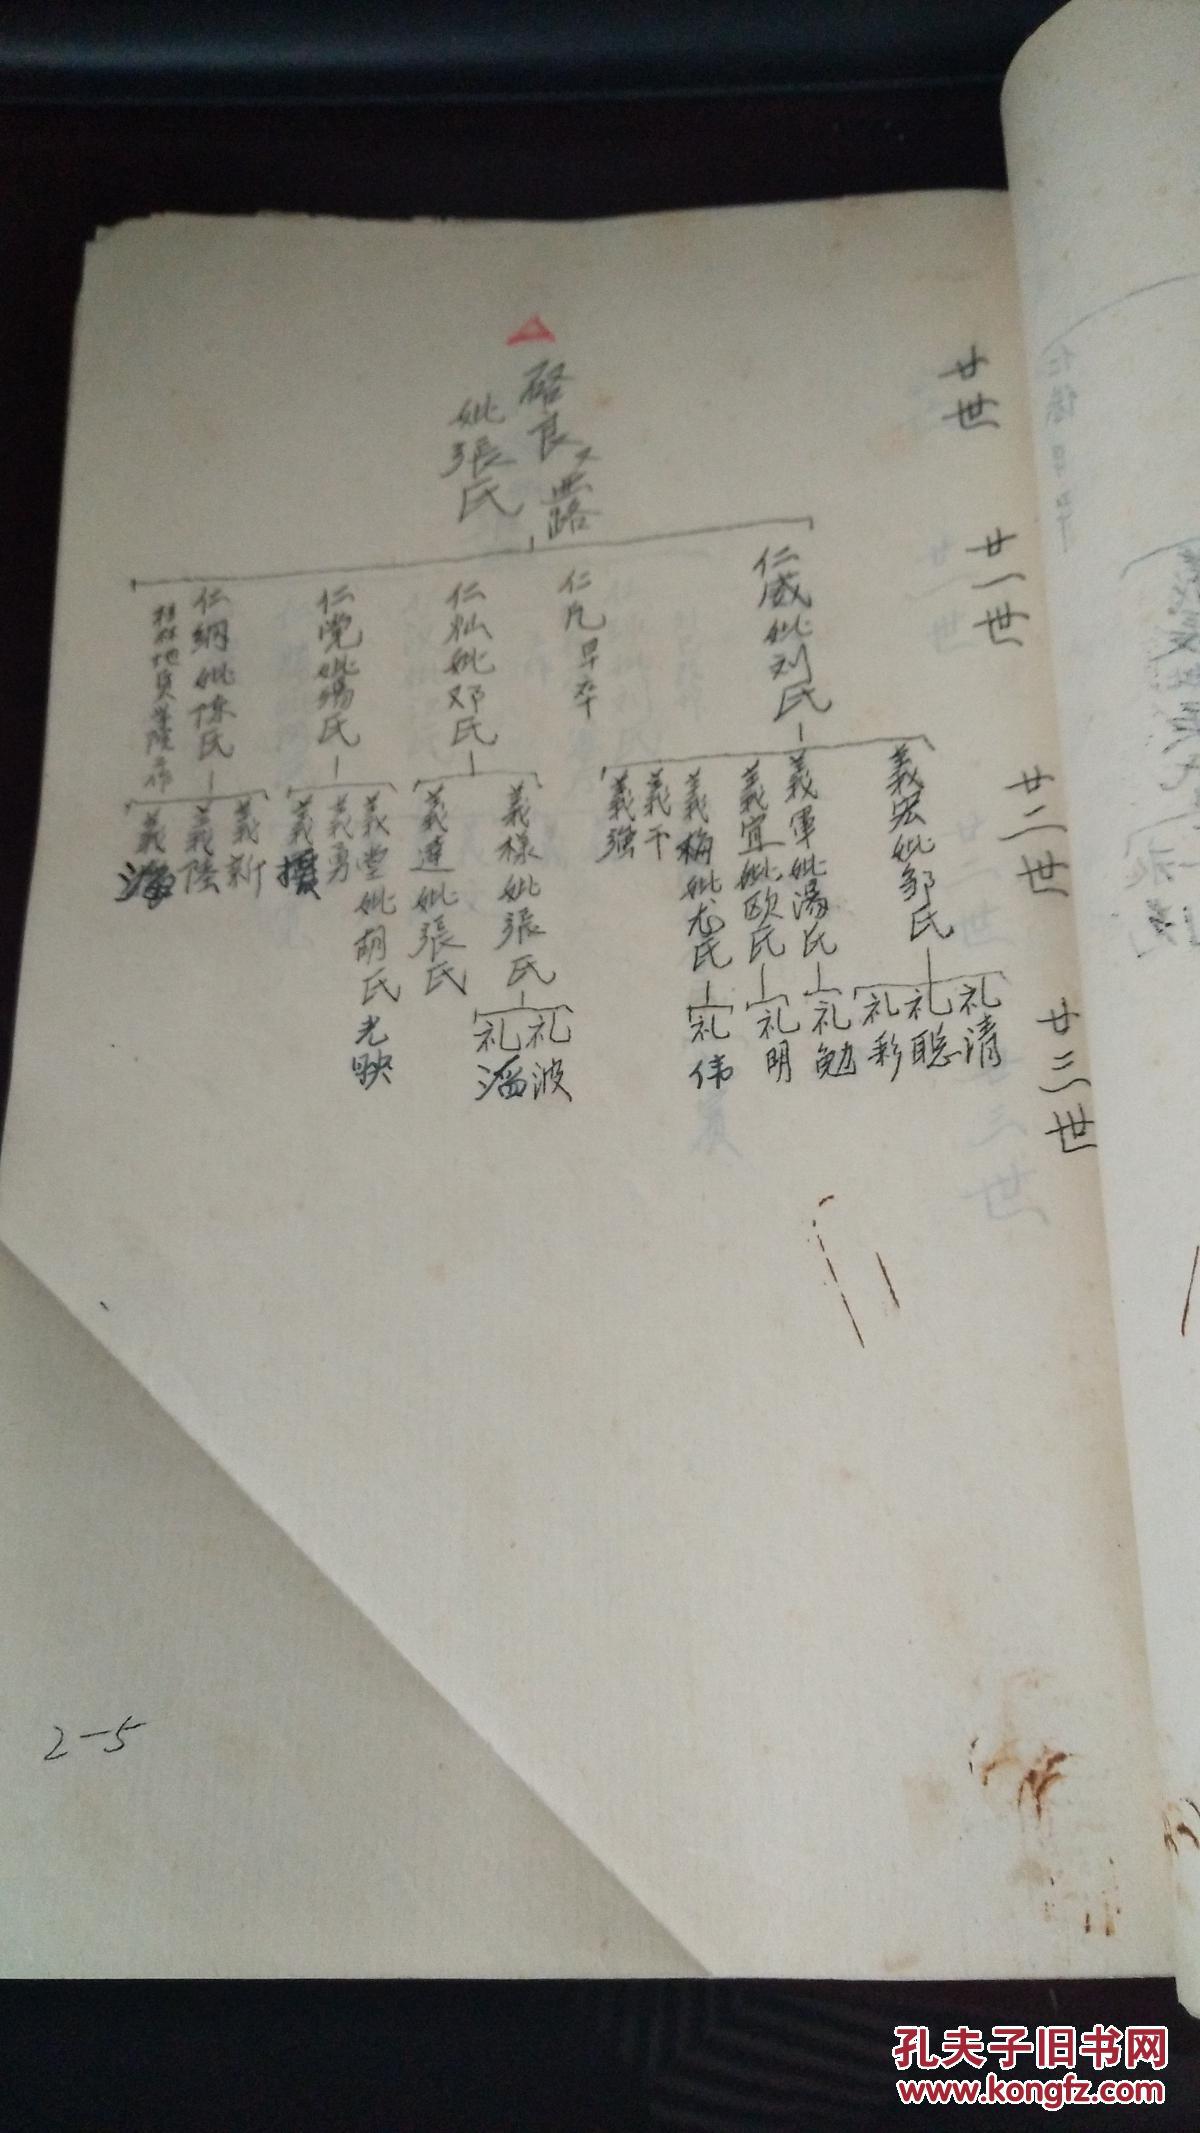 廿世
良又
妣張氏
廿一世
仁威妣刘氏
仁凡早卒
仁灿妣邓氏
仁党妣湯氏
仁綱妣陈氏
桂林地質学院工作
廿二世
義宏妣邹氏
義軍妣湯氏
義宜妣欧氏
義梅妣尤氏
義干
義强
義样妣張氏
義連妣張氏
義堂妣胡氏
光映
義勇
義
義新
義陸
義海
廿三世
礼清
礼聪
礼彩
礼勉
礼明
礼伟
礼波
礼滔
2-5
孔夫子旧书网
www.kongfz.com